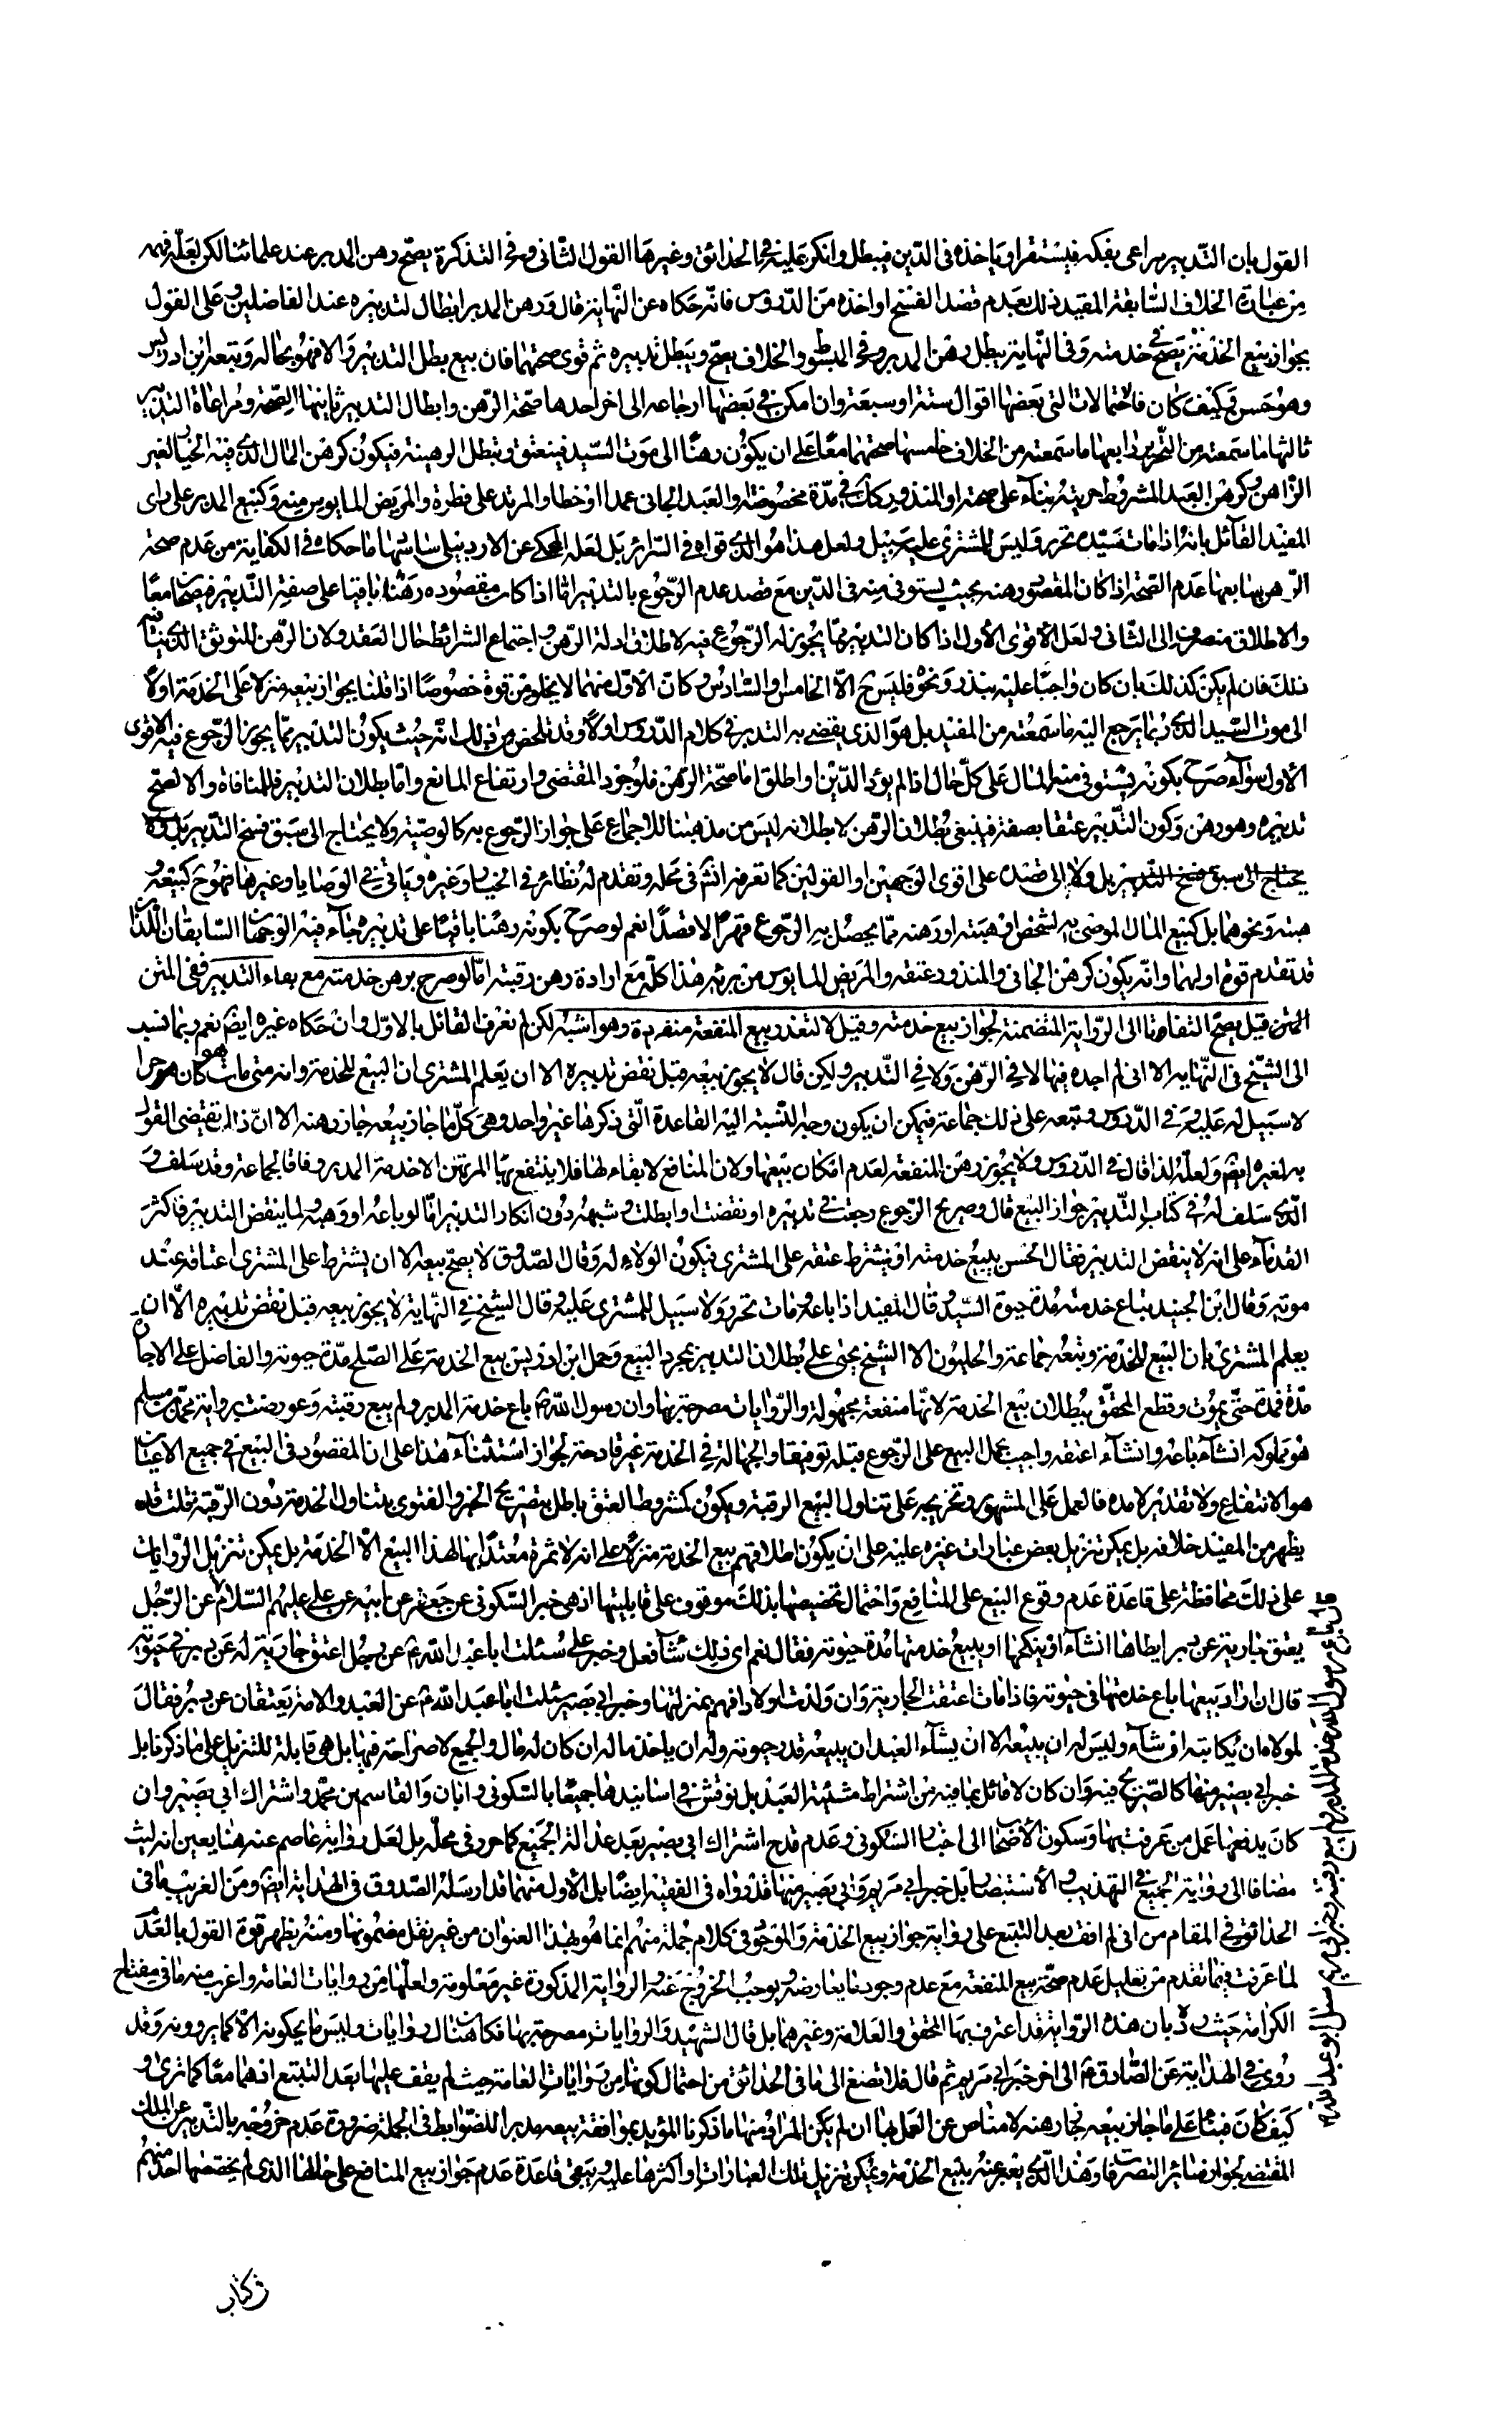 القول بان التدبير مراعى بفكه فيستقر او ياخذه فى الدين فيبطل وانكر عليه فى الحدائق وغيرها القول الثانى وفى التذكرة يصح رهن المدبر عند علمائنا لكن لعله فهمه
من عبارة الخلاف السابقة المقيد ذلك بعدم قصد الفسخ او اخذه من الدروس فانه حكاه عن النهاية قال ورهن المدبر ابطال لتدبيره عند الفاضلين وعلى القول
بجواز بيع الخدمة يصح فى خدمته وفى النهاية يبطل رهن المدبر وفى المبسوط والخلاف يصح ويبطل تدبيره ثم قوى صحتهما فان بيع بطل التدبير والا فهو بحاله وتبعه ابن ادريس
وهو حسن وكيف كان فالاحتمالات التى بعضها اقوال ستة او سبعة وان امكن فى بعضها ارجاعه الى اخر احدها صحة الرهن وابطال التدبير ثانيها الصحة ومراعاة التدبير
ثالثها ما سمعته من التحرير رابعها ما سمعته من الخلاف خامسها صحتهما معا على ان يكون رهنا الى موت السيد فينعتق وتبطل الرهينة فيكون كرهن المال الذى فيه الخيار لغير
الراهن وكرهن العبد المشروط حريته بناء على صحته او المنذور كذلك فى مدة مخصوصة والعبد الجانى عمدا او خطا والمرتد على فطرة والمريض المايوس منه وكبيع المدبر على راى
المفيد القائل بانه اذا مات سيده تحرر وليس للمشترى عليه سبيل ولعل هذا هو الذى قواه فى السرائر بل لعله المحكى عن الاردبيلى سادسها ما حكاه فى الكفاية من عدم صحة
الرهن سابعها عدم الصحة اذا كان المقصود رهنه بحيث يستوفى منه فى الدين مع قصد عدم الرجوع بالتدبير اما اذا كان مقصوده رهنا باقيا على صفة التدبير فيصحان معا
والاطلاق منصرف الى الثانى ولعل الاقوى الاول اذا كان التدبير مما يجوز له الرجوع فيه لاطلاق ادلة الرهن واجتماع الشرائط حال العقد ولان الرهن للتوثق الذى ينافيه
ذلك فان لم يكن كذلك بان كان واجبا عليه بنذر ونحوه فليس الا الخامس والسادس وكان الاول منهما لا يخلو من قوة خصوصا اذا قلنا بجواز بيعه منزلا على الخدمة اولا
الى موت السيد الذى ربما يرجع اليه ما سمعته من المفيد بل هو الذى يقضى به التدبر فى كلام الدروس اولا وقد تلخص من ذلك انه حيث يكون التدبير مما يجوز الرجوع فيه الاقوى
الاول سواء صرح بكونه يستوفى منه المال على كل حال اذا لم يؤد الدين او اطلق اما صحة الرهن فلوجود المقتضى وارتفاع المانع واما بطلان التدبير فللمنافاة والا لصح
تدبيره وهو رهن وكون التدبير عتقا بصفة فينبغى بطلان الرهن لا بطلانه ليس من مذهبنا للاجماع على جواز الرجوع به كالوصية ولا يحتاج الى سبق فسخ التدبير بل ولا
يحتاج الى سبق فسخ التدبير بل ولا الى قصده على اقوى الوجهين او القولين كما تعرفه انش فى محله وتقدم له نظائر فى الخيار وغيره وياتى فى الوصايا وغيرها فهو ح كبيعه و
هبته ونحوهما بل كبيع المال الموصى به لشخص او هبته او رهنه مما يحصل به الرجوع قهرا لا قصدا نعم لو صرح بكونه رهنا باقيا على تدبيره جاء فيه الوجهان السابقان اللذان
قد تقدم قوة اولهما وانه يكون كرهن الجانى والمنذور عتقه والمريض المايوس من برئه هذا كله مع ارادة رهن رقبته اما لو صرح برهن خدمته مع بقاء التدبير ففى المتن
المتن قيل يصح التفاتا الى الرواية المتضمنة لجواز بيع خدمته وقيل لا لتعذر بيع المنفعة منفردة وهو اشبه لكن لم نعرف القائل بالاول وان حكاه غيره ايضم نعم ربما نسب
الى الشيخ فى النهاية الا انى لم اجده فيها لا فى الرهن ولا فى التدبير ولكن قال لا يجوز بيعه قبل نقض تدبيره الا ان يعلم المشترى ان البيع للخدمة وانه متى مات هو كان حرا
لا سبيل له عليه وعن الدروس وتبعه على ذلك جماعة فيمكن ان يكون وجه النسبة اليه القاعدة التى ذكرها غير واحد وهى كل ما جاز بيعه جاز رهنه الا ان ذلك يقتضى القول
به لغيره ايضم ولعله لذا قال فى الدروس ولا يجوز رهن المنفعة لعدم امكان بيعها ولان المنافع لا بقاء لها فلا ينتفع بها المرتهن الا خدمة المدبر وفاقا لجماعة وقد سلف و
الذى سلف له فى كتاب التدبير جواز البيع قال وصريح الرجوع رجعت فى تدبيره او نقضت او ابطلت وشبهه دون انكار التدبير اما لو باعه او وهبه ولما ينقض التدبير فاكثر
القدماء على انه لا ينقض التدبير فقال الحسن يبيع خدمته او يشترط عتقه على المشترى فيكون الولاء له وقال الصدوق لا يصح بيعه الا ان يشترط على المشترى اعتاقه عند
موته وقال ابن الجنيد تباع خدمته مدة حيوة السيد وقال المفيد اذا باعه ومات تحرر ولا سبيل للمشترى عليه وقال الشيخ فى النهاية لا يجوز بيعه قبل نقض تدبيره الا ان
يعلم المشترى بان البيع للخدمة وتبعه جماعة والحليون الا الشيخ يحيى على بطلان التدبير بمجرد البيع وحمل ابن ادريس بيع الخدمة على الصلح مدة حيوته والفاضل على الاجارة
مدة فمدة حتى يموت وقطع المحقق ببطلان بيع الخدمة لانها منفعة مجهولة والروايات مصرحة بها وان رسول اللهص باع خدمة المدبر ولم يبع رقبته وعورضت برواية محمد بن مسلم
هو مملوكه ان شاء باعه وان شاء اعتقه واجيب بحمل البيع على الرجوع قبله توفيقا والجهالة فى الخدمة غير قادحة لجواز استثناء هذا على ان المقصود فى البيع فى جميع الاعيان
هو الانتفاع ولا تقدير لامده فالعمل على المشهور وتخريجه على تناول البيع الرقبة ويكون كمشروط العتق باطل بتصريح الخبر والفتوى بتناول الخدمة دون الرقبة قلت قد
يظهر من المفيد خلافه بل يمكن تنزيل بعض عبارات غيره عليه على ان يكون اطلاقهم بيع الخدمة منزلا على انه لا ثمرة معتدا بها لهذا البيع الا الخدمة بل يمكن تنزيل الروايات
على ذلك محافظة على قاعدة عدم وقوع البيع على المنافع واحتمال تخصيصها بذلك موقوف على قابليتها اذ هى خبر السكونى عن جعفر عن ابيه عن على عليهم السلام عن الرجل
يعتق جاريته عن دبر ايطاها ان شاء او ينكحها او يبيع خدمتها مدة حيوته فقال نعم اى ذلك شاء فعل وخبر على سئلت ابا عبد اللهع عن رجل اعتق جارية له عن دبر فى حيوته
قال ان اراد بيعها باع خدمتها فى حيوته فاذا مات اعتقت الجارية وان ولدت اولادا فهم بمنزلتها وخبر ابى بصير سئلت ابا عبد اللهع عن العبد والامة يعتقان عن دبر فقال
لمولاه ان يكاتبه ان شاء وليس له ان يبيعه الا ان يشاء العبد ان يبيعه قدر حيوته وله ان ياخذ ماله ان كان له مال والجميع لا صراحة فيها بل هى قابلة للتنزيل على ما ذكر قابل
خبر ابى بصير منها كالصريح فيه وان كان لا قائل بما فيه من اشتراط مشيئة العبد بل نوقش فى اسانيدها جميعا بالسكونى وابان والقاسم بن محمد واشتراك ابى بصير وان
كان يدفعها عمل من عرفت بها وسكون الاصحاب الى اخبار السكونى وعدم قدح اشتراك ابى بصير بعد عدالة الجميع كما حرر فى محله بل لعل رواية عاصم عنه هنا يعين انه ليث
مضافا الى رواية الجميع فى التهذيب والاستبصار بل خبر ابى مريم وابى بصير منها قد رواه فى الفقيه ايضا بل الاول منهما قد ارسله الصدوق فى الهداية ايضم ومن الغريب ما فى
الحدائق فى المقام من انى لم اقف بعد التتبع على رواية جواز بيع الخدمة والموجود فى كلام جملة منهم انما هو بهذا العنوان من غير نقل مضمونها ومنه يظهر قوة القول بالعدم
لما عرفت فيما تقدم من تعليل عدم صحة بيع المنفعة مع عدم وجود ما يعارضه ويوجب الخروج عنه والرواية المذكورة غير معلومة ولعلها من روايات العامة واغرب منه ما فى مفتاح
الكرامة حيث رده بان هذه الرواية قد اعترف بها المحقق والعلامة وغيرهما بل قال الشهيد والروايات مصرحة بها فكان هناك روايات وليس ما يحكونه الا كما يروونه وقد
روى فى الهداية عن الصادقع الى اخر خبر ابى مريم ثم قال فلا تصغ الى ما فى الحدائق من احتمال كونها من روايات العامة حيث لم يقف عليها بعد التتبع اذ هما معا كما ترى و
كيف كان فبناء على ما جاز بيعه جاز رهنه لا مناص عن العمل بها ان لم يكن المراد منها ما ذكرنا المؤيد بموافقة بيعه مدبرا للضوابط فى الجملة ضرورة عدم خروجه بالتدبير عن الملك
المقتضى لجواز سائر التصرفات وهذا الذى يعبر عنه ببيع الخدمة ويمكن تنزيل تلك العبارات او اكثرها عليه ويبقى قاعدة عدم جواز بيع المنافع على حالها الذى لم يخصها احد منهم
قال باع رسول اللهص خدمة المدبر ولم يبع رقبته وخبر ابى مريم سئل ابو عبد اللهع
وكتاب